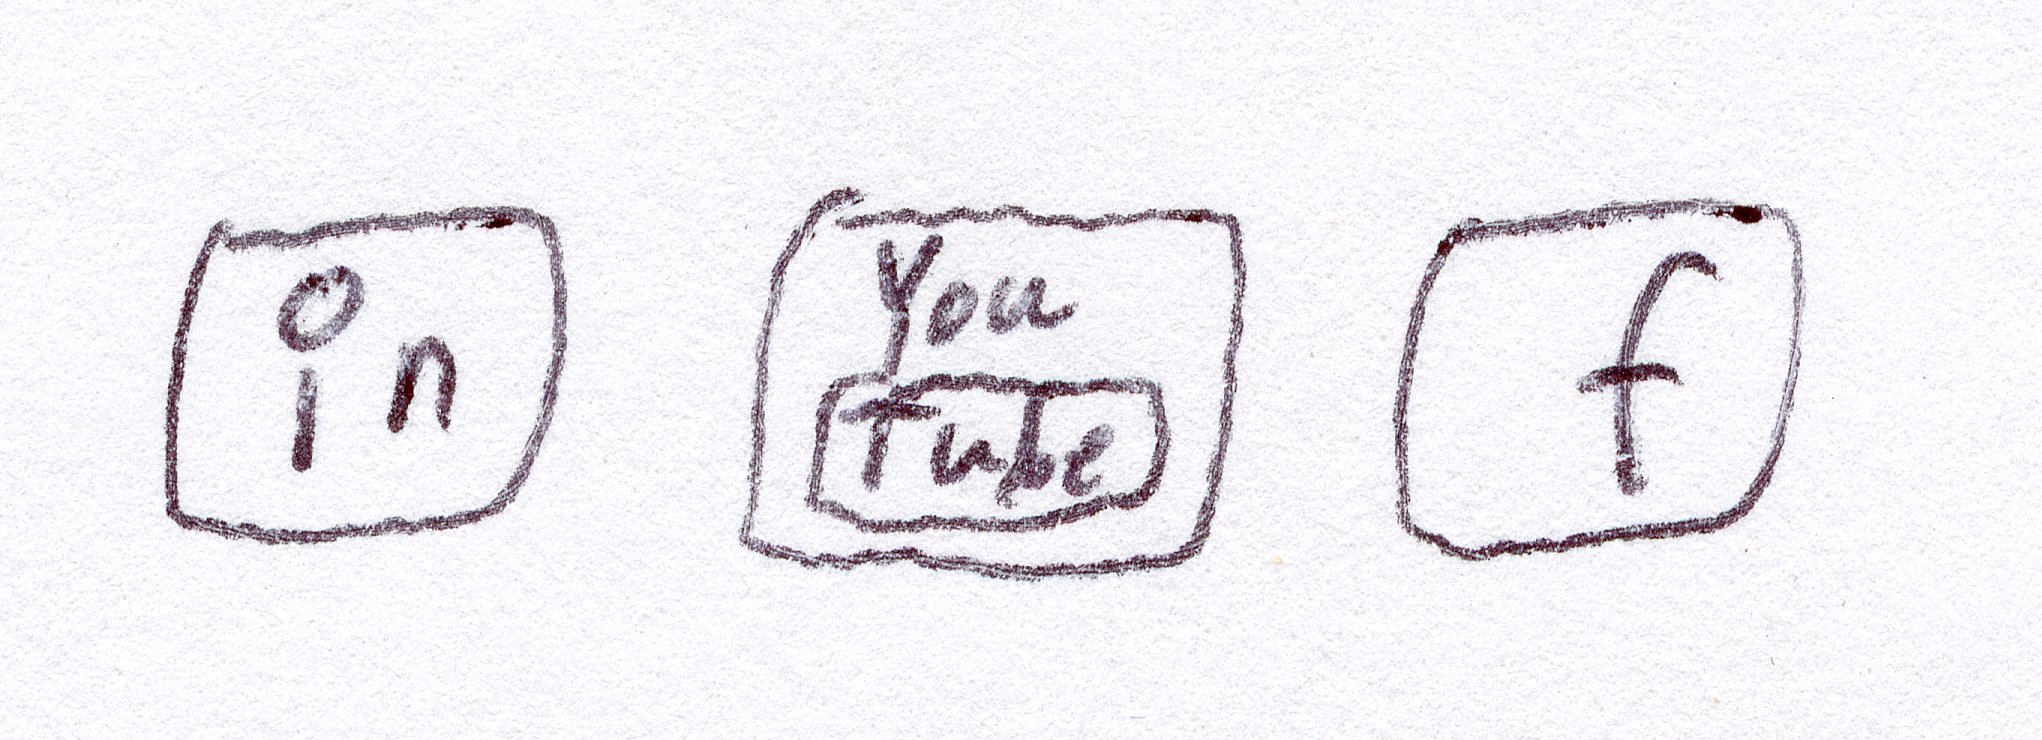 in
You
Tube
f